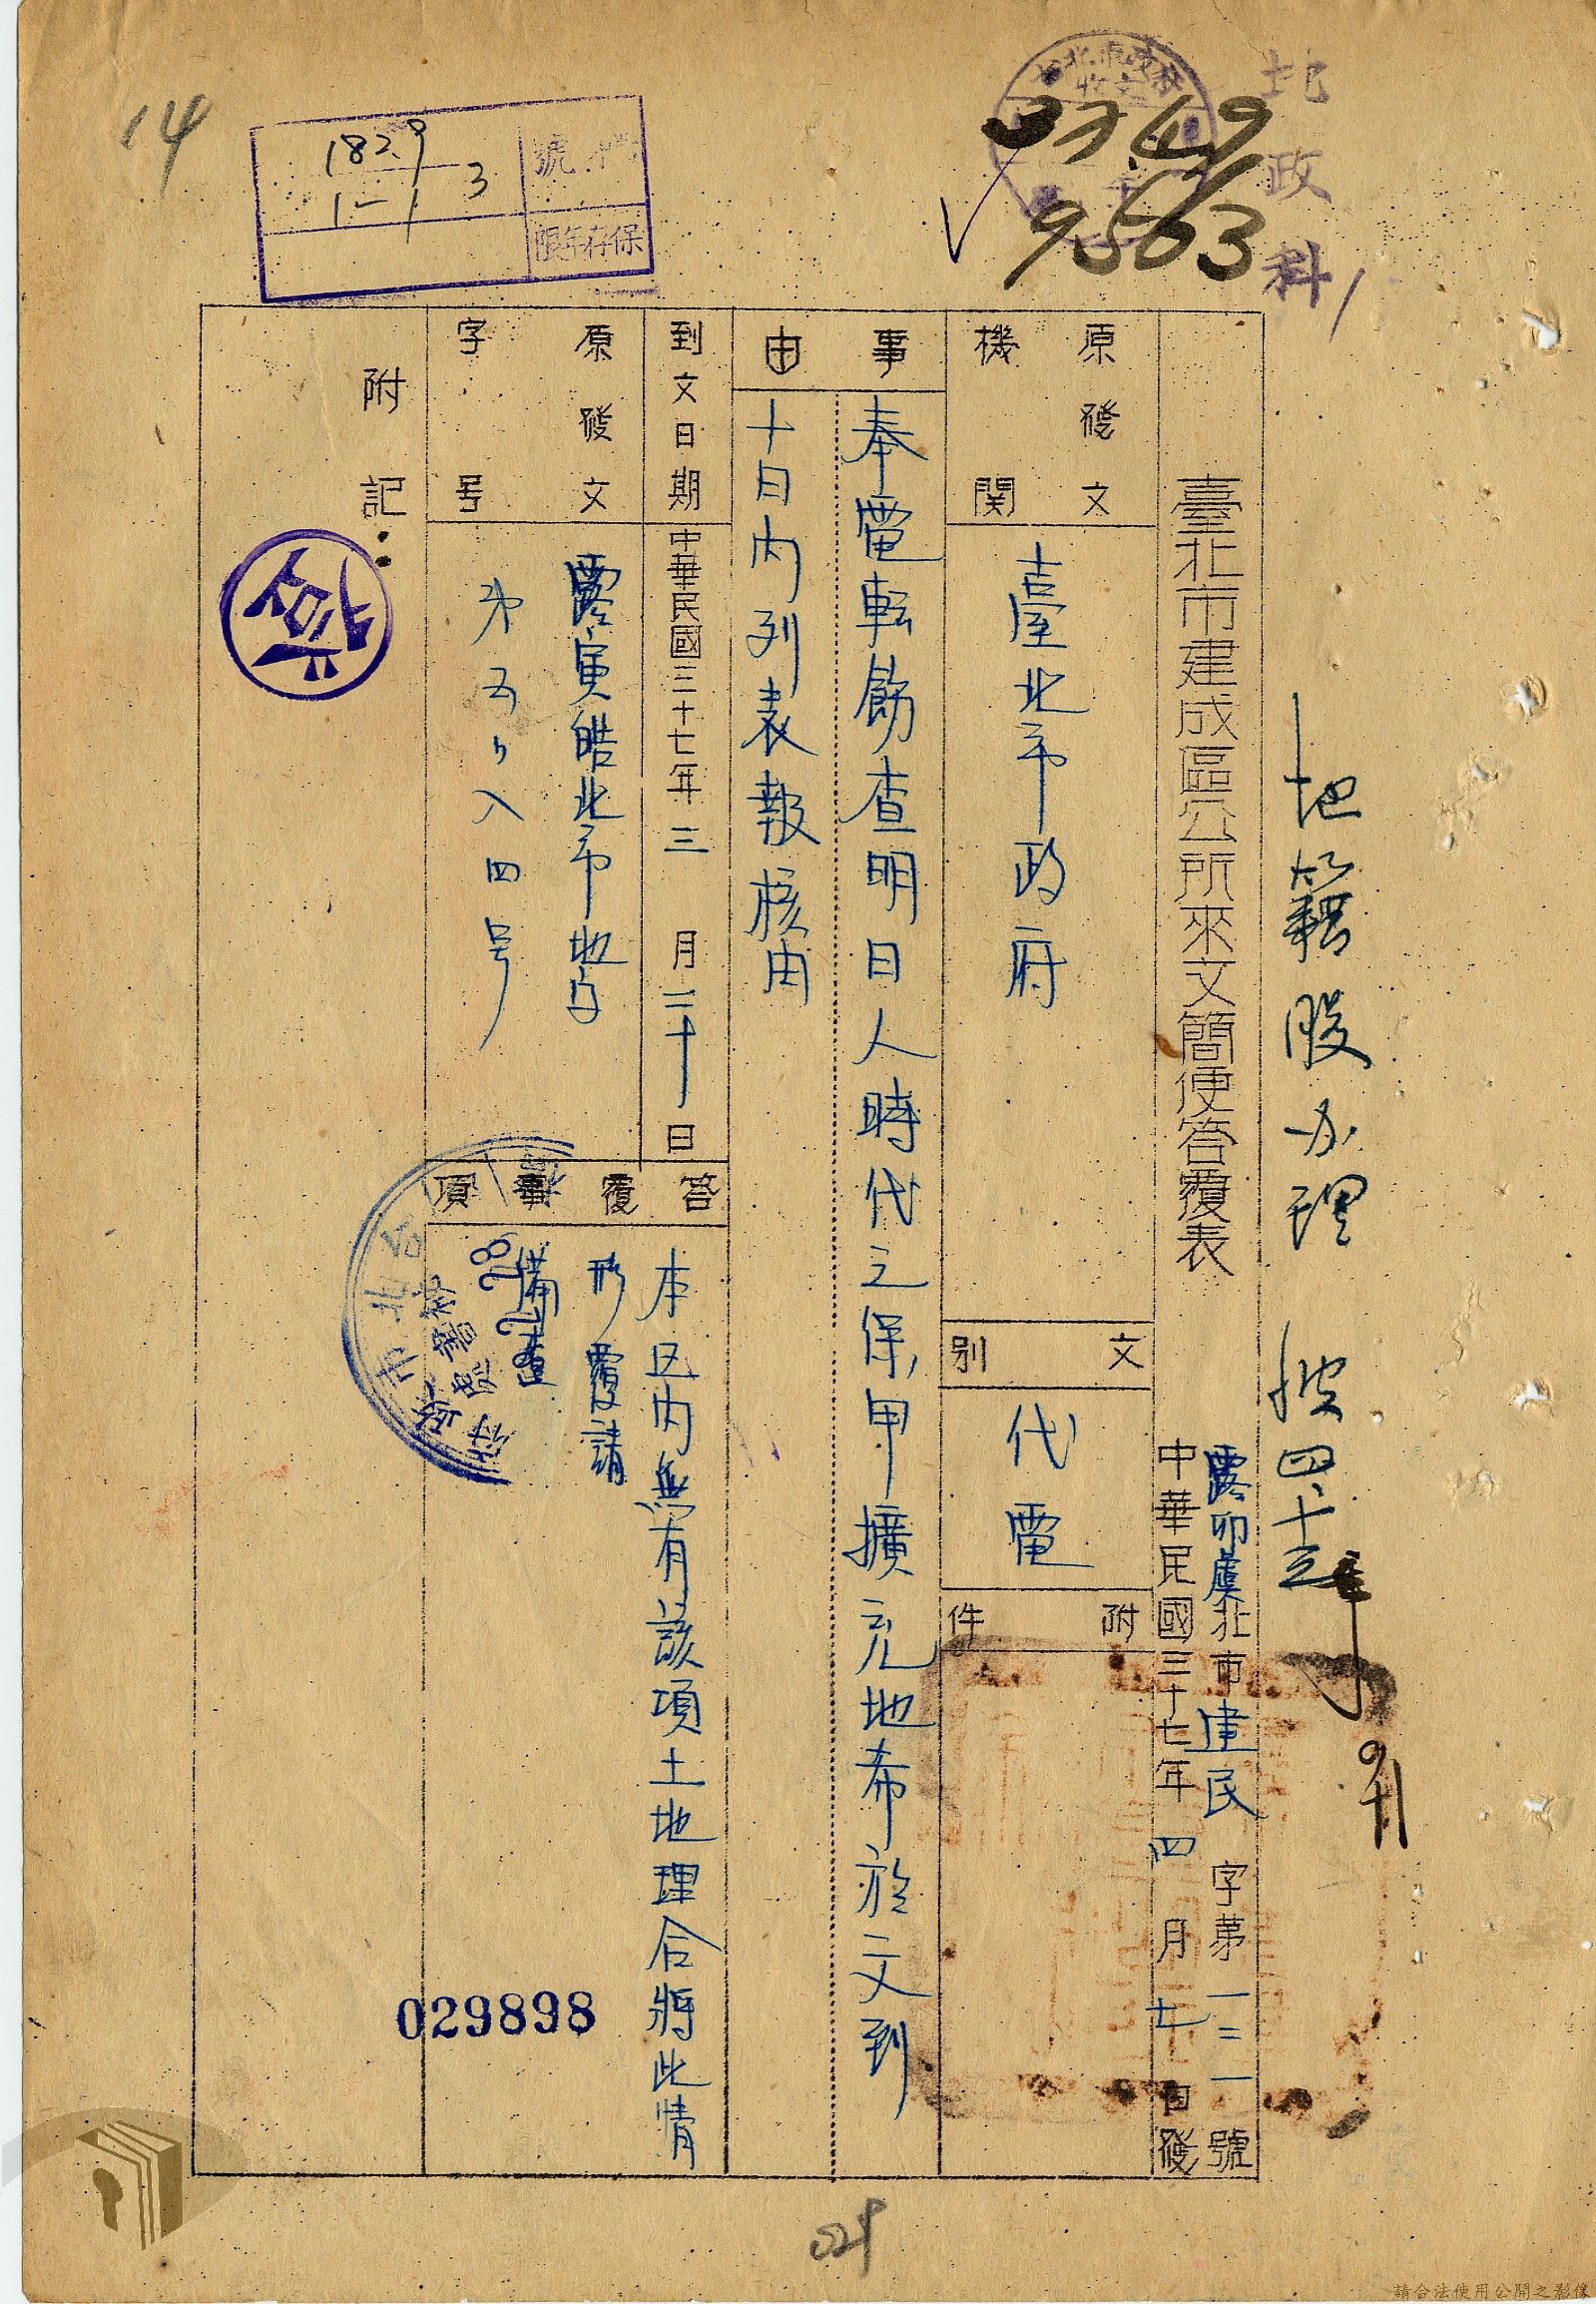 14
檔號
1829
1-1
3
保存年限
3749
9563
地政科
地籍股办理
臺北市建成區公所來文簡便答覆表
露卯虞北市建民字第一三一號
中華民國三十七年四月七日發
原發文機関
臺北市政府
文別
代電
附件
事由
奉電転飭查明日人時代之保甲擴充地希於文到
十日内列表報核由
到文日期
中華民國三十七年三月二十日
原發文字号
露寅皓北市地字
答覆事項
本区内無有該項土地理合將此情
形覆請
備查
附記：
登
029898
029
請合法使用公開之影像